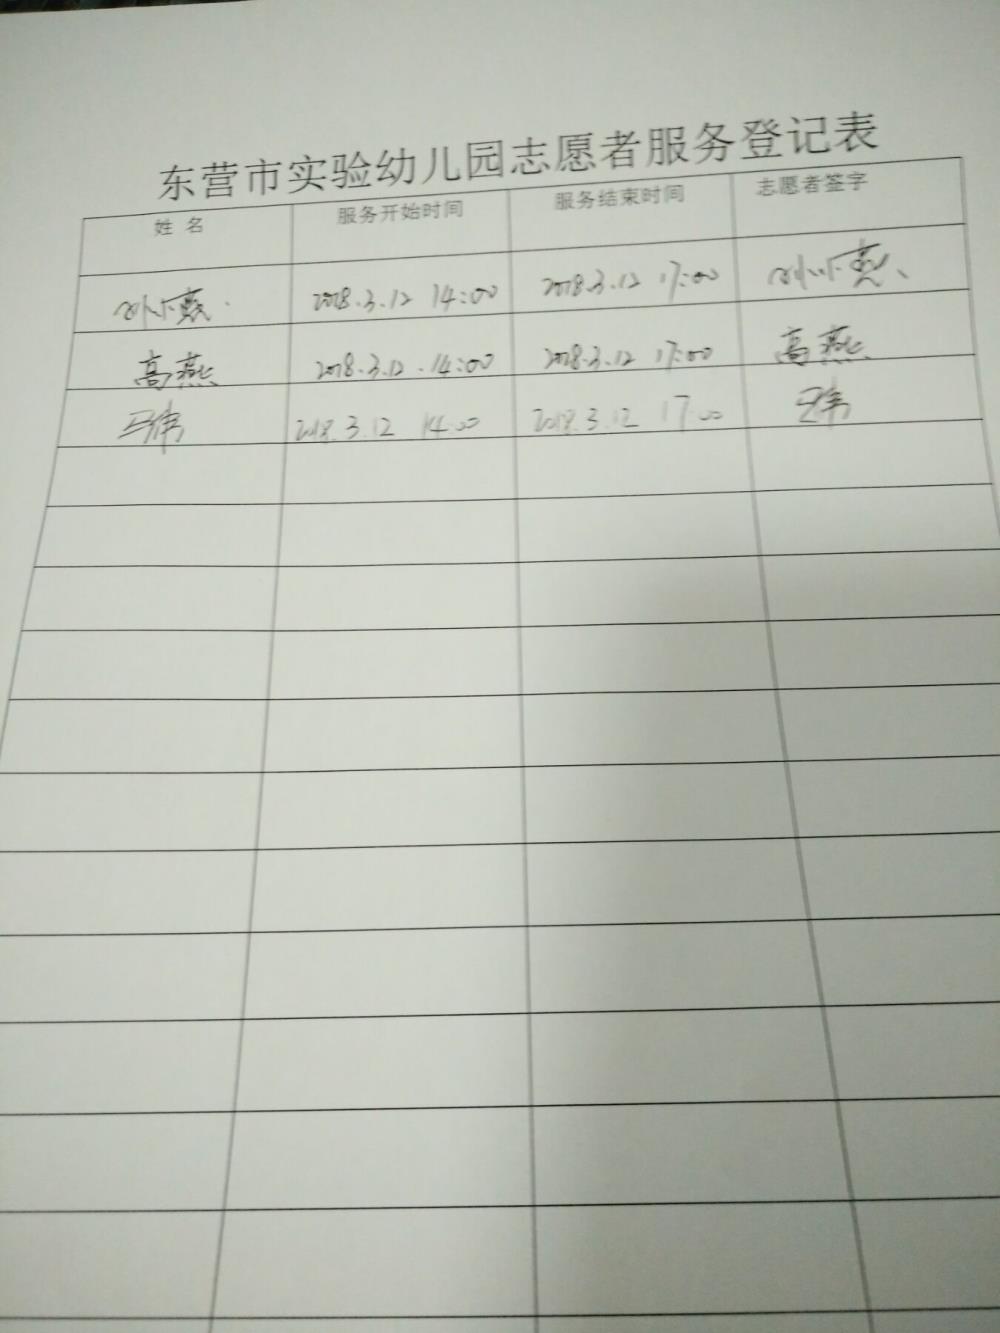 东营市实验幼儿园志愿者服务登记表
姓 名 服务开始时间 服务结束时间 志愿者签字
2018.3.12 14:00 2018.3.12 17:00
高燕 2018.3.12 14:00 2018.3.12 17:00 高燕
2018.3.12 14:00 2018.3.12 17:00